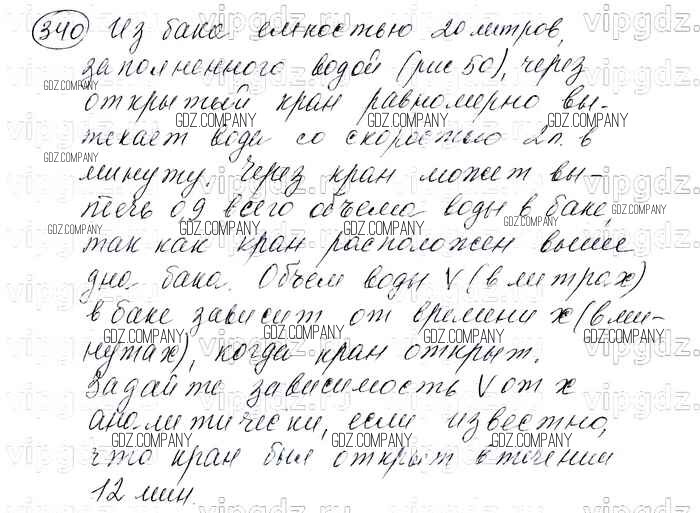 340 Из бака емкостью 20 литров,
заполненного водой (рис 50), через
открытый кран равномерно вы-
текает вода со скоростью 2л. в
минуту. Через кран может вы-
течь 0,9 всего объема воды в баке,
так как кран расположен выше
дна бака. Объем воды V (в литрах)
в баке зависит от времени x (в ми-
нутах), когда кран открыт.
Задайте зависимость V от x
аналитически, если известно,
что кран был открыт в течении
12 мин.
GDZ.COMPANY
vipgdz.ru